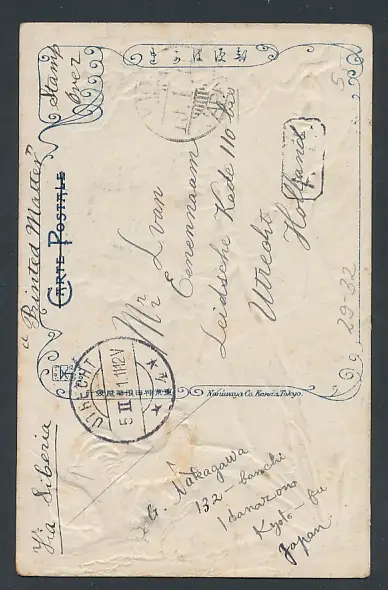 Stamp
over
きかはび便郵
"Printed Matter"
CARTE POSTALE
Mr L. van
Eenennaam
Leidsche Kade 110 bis
Utrecht
Holland
5
29-32
UTRECHT
5 II 11.12V
4
Naniwaya Co. Kanda, Tokyo.
Via Siberia
G. Nakagawa
132 - banchi
Kyoto - fu
Japan